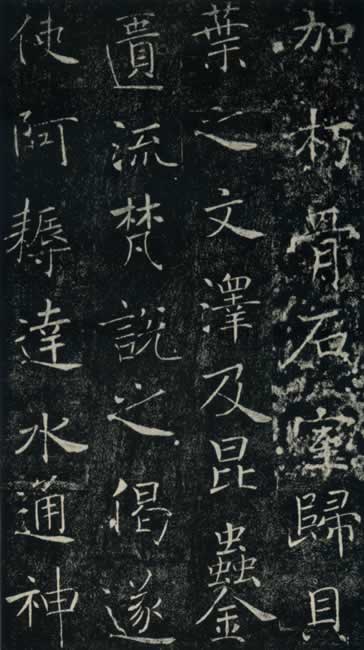 加朽骨石室歸貝
葉之文澤及昆蟲金
匱流梵說之偈遂
使阿耨達水通神